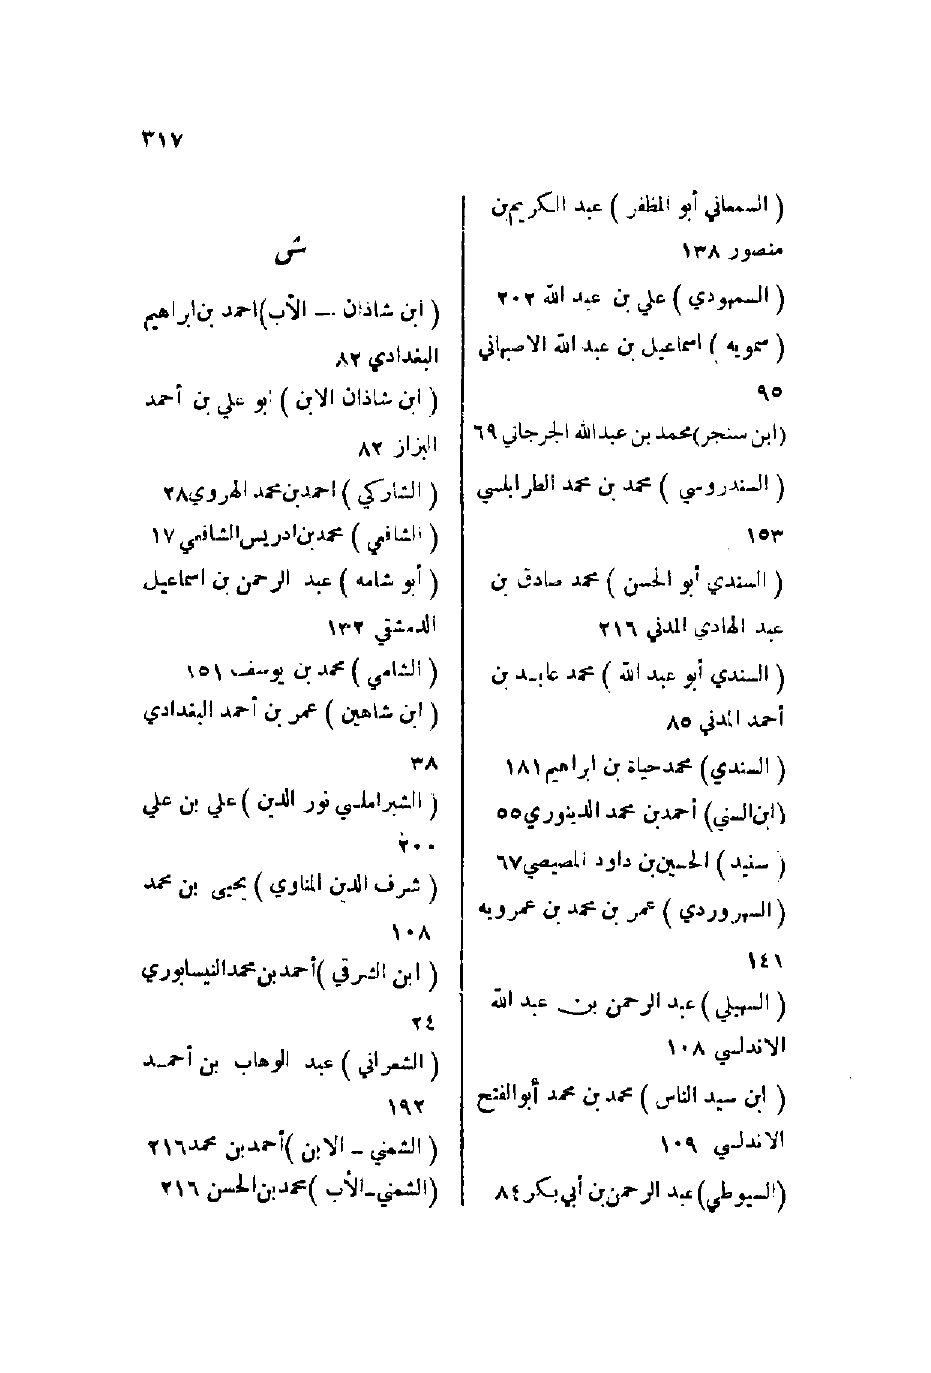 ٣١٧
( السمعاني أبو المظفر ) عبد الكريم بن
منصور ١٣٨
( السمهودي ) علي بن عبد الله ٢٠٢
( سمويه ) اسماعيل بن عبد الله الاصبهاني
٩٥
(ابن سنجر)محمد بن عبدالله الجرجاني ٦٩
( السندروسي ) محمد بن محمد الطرابلسي
١٥٣
( السندي أبو الحسن ) محمد صادق بن
عبد الهادي المدني ٢١٦
( السندي أبو عبد الله ) محمد عابد بن
أحمد المدني ٨٥
( السندي) محمد حياة بن ابراهيم ١٨١
(ابن السني) أحمد بن محمد الدينوري ٥٥
( سنيد ) الحسين بن داود المصيصي ٦٧
( السهروردي ) عمر بن محمد بن عمرويه
١٤١
( السهيلي ) عبد الرحمن بن عبد الله
الاندلسي ١٠٨
( ابن سيد الناس ) محمد بن محمد أبو الفتح
الاندلسي ١٠٩
(السيوطي) عبد الرحمن بن أبي بكر ٨٤
ش
( ابن شاذان - الأب)احمد بن ابراهيم
البغدادي ٨٢
( ابن شاذان الابن ) ابو علي بن أحمد
البزاز ٨٢
( الشاركي ) احمد بن محمد الهروي ٢٨
( الشافعي ) محمد بن ادريس الشافعي ١٧
( أبو شامه ) عبد الرحمن بن اسماعيل
الدمشقي ١٣٢
( الشامي ) محمد بن يوسف ١٥١
( ابن شاهين ) عمر بن أحمد البغدادي
٣٨
( الشبراملسي نور الدين ) علي بن علي
٢٠٠
( شرف الدين المناوي ) يحيى بن محمد
١٠٨
( ابن الشرقي )أحمد بن محمد النيسابوري
٢٤
( الشعراني ) عبد الوهاب بن أحمد
١٩٢
( الشمني - الابن )أحمد بن محمد ٢١٦
(الشمني-الأب )محمد بن الحسن ٢١٦